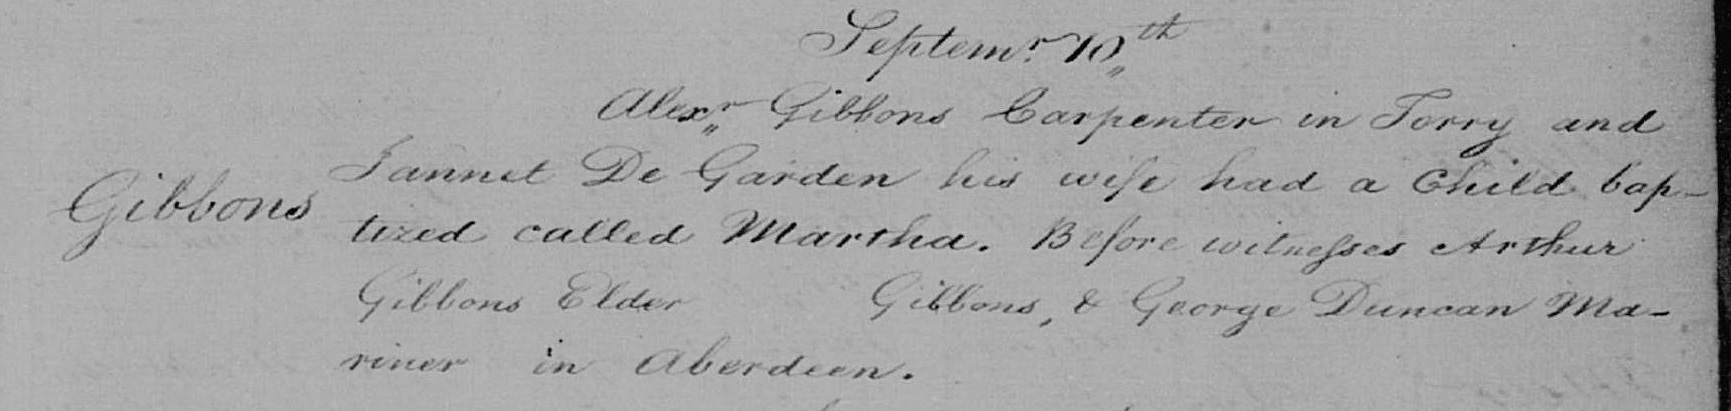 Septemr. 10th
Alexr. Gibbons Carpenter in Torry and
Gibbons
Jannet De Garden his wife had a Child bap-
tized called Martha. Before witnesses Arthur
Gibbons Elder Gibbons, & George Duncan Ma-
riner in Aberdeen.